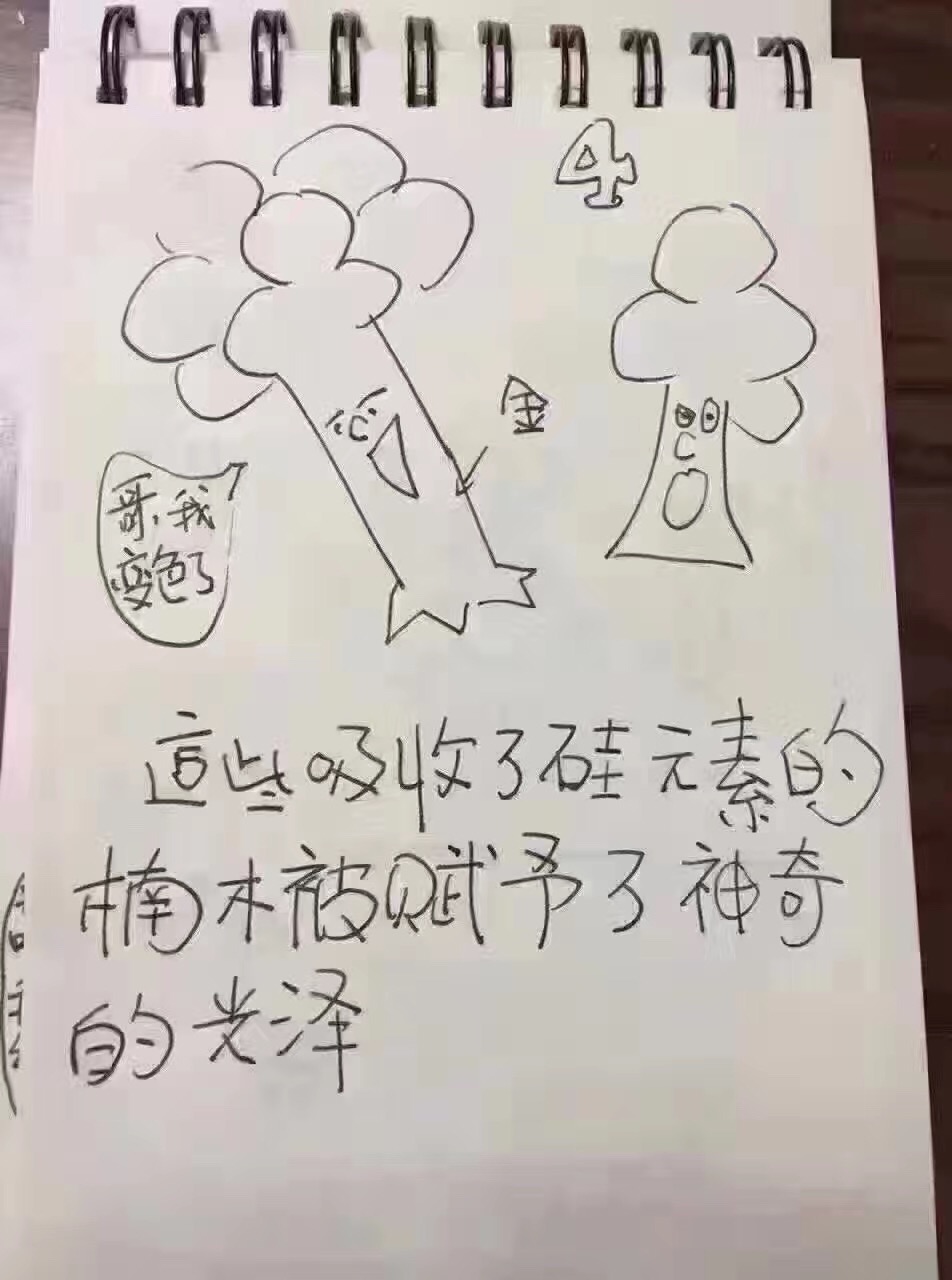 4
金
哥,我
变色了
這些吸收了硅元素的
楠木被赋予了神奇
的光泽